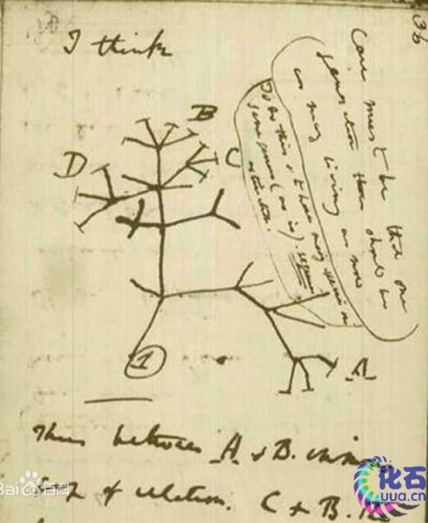 36
I think
Case must be that one
generation then should be
as many living as now
To do this & to have many species in
same genus (as is). requires
extinction.
B
D
C
A
1
Thus between A & B. immense
gap of relation. C & B. the
Bai
百科
化石
uua.cn